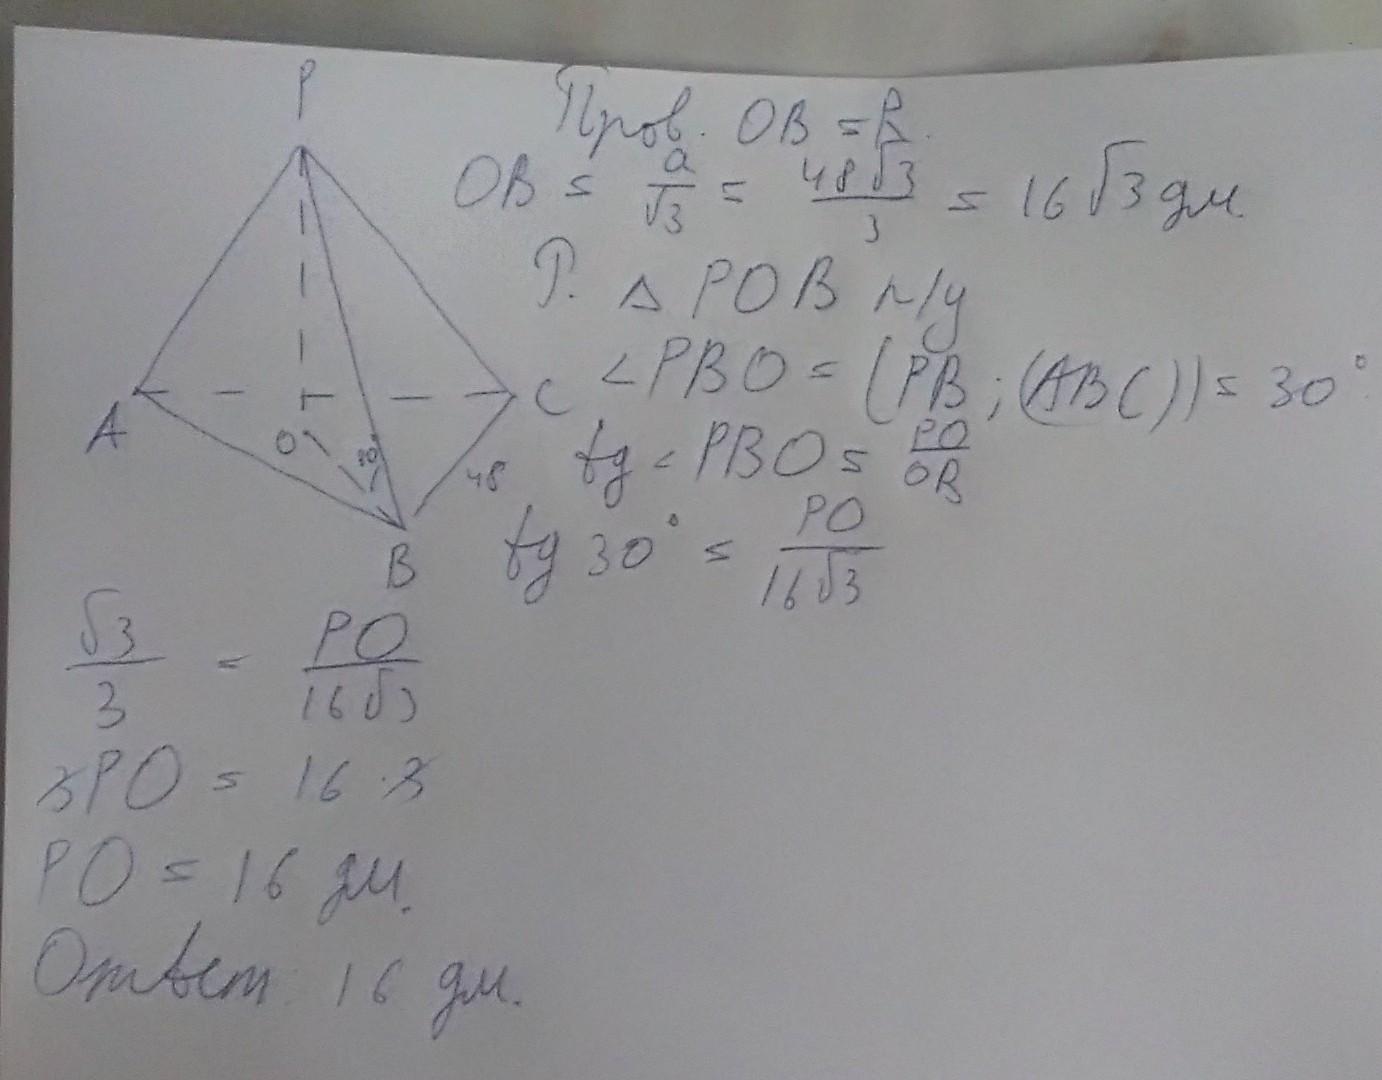 P
Пров. OB = R.
OB = a/√3 = 48√3/3 = 16√3 дм.
Р. △ POB п/у
A
O
30
B
C
48
∠PBO = (PB; (ABC)) = 30°.
tg ∠PBO = PO/OB
tg 30° = PO/16√3
√3/3 = PO/16√3
3PO = 16·3
PO = 16 дм.
Ответ: 16 дм.